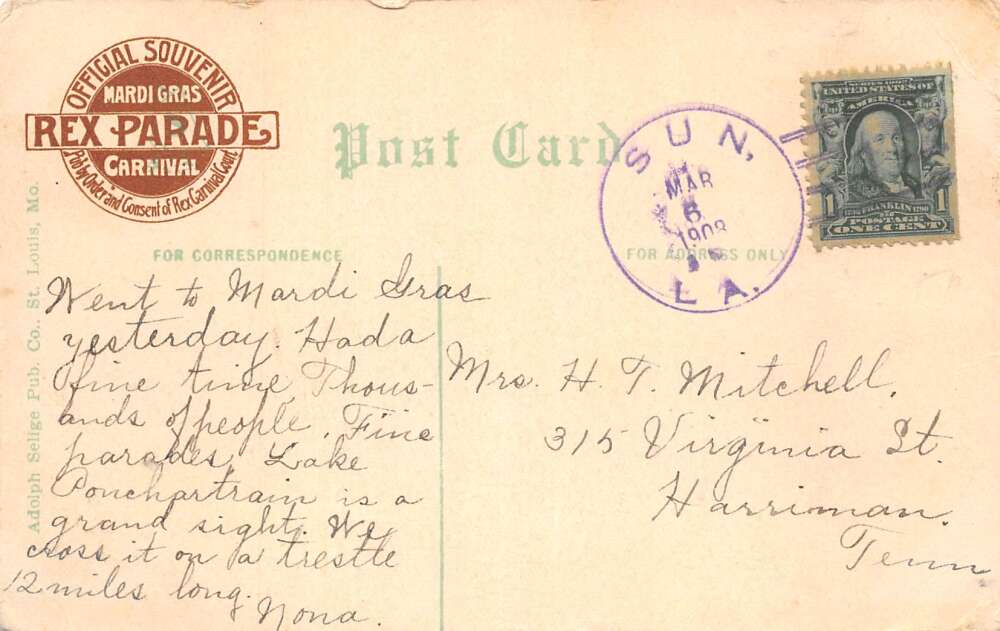 OFFICIAL SOUVENIR
MARDI GRAS
REX PARADE
CARNIVAL
Pub. by Order and Consent of Rex Carnival Court.
Post Card
SUN,
MAR
6
1908
LA.
SERIES 1902
UNITED STATES OF
AMERICA
1 FRANKLIN 1
POSTAGE
ONE CENT
Adolph Selige Pub. Co., St. Louis, Mo.
FOR CORRESPONDENCE
FOR ADDRESS ONLY
Went to Mardi Gras
yesterday. Had a
fine time, Thous-
ands of people. Fine
parades, Lake
Ponchartrain is a
grand sight. We
cross it on a trestle
12 miles long.
Nona.
Mrs. H. T. Mitchell,
315 Virginia St.
Harriman.
Tenn